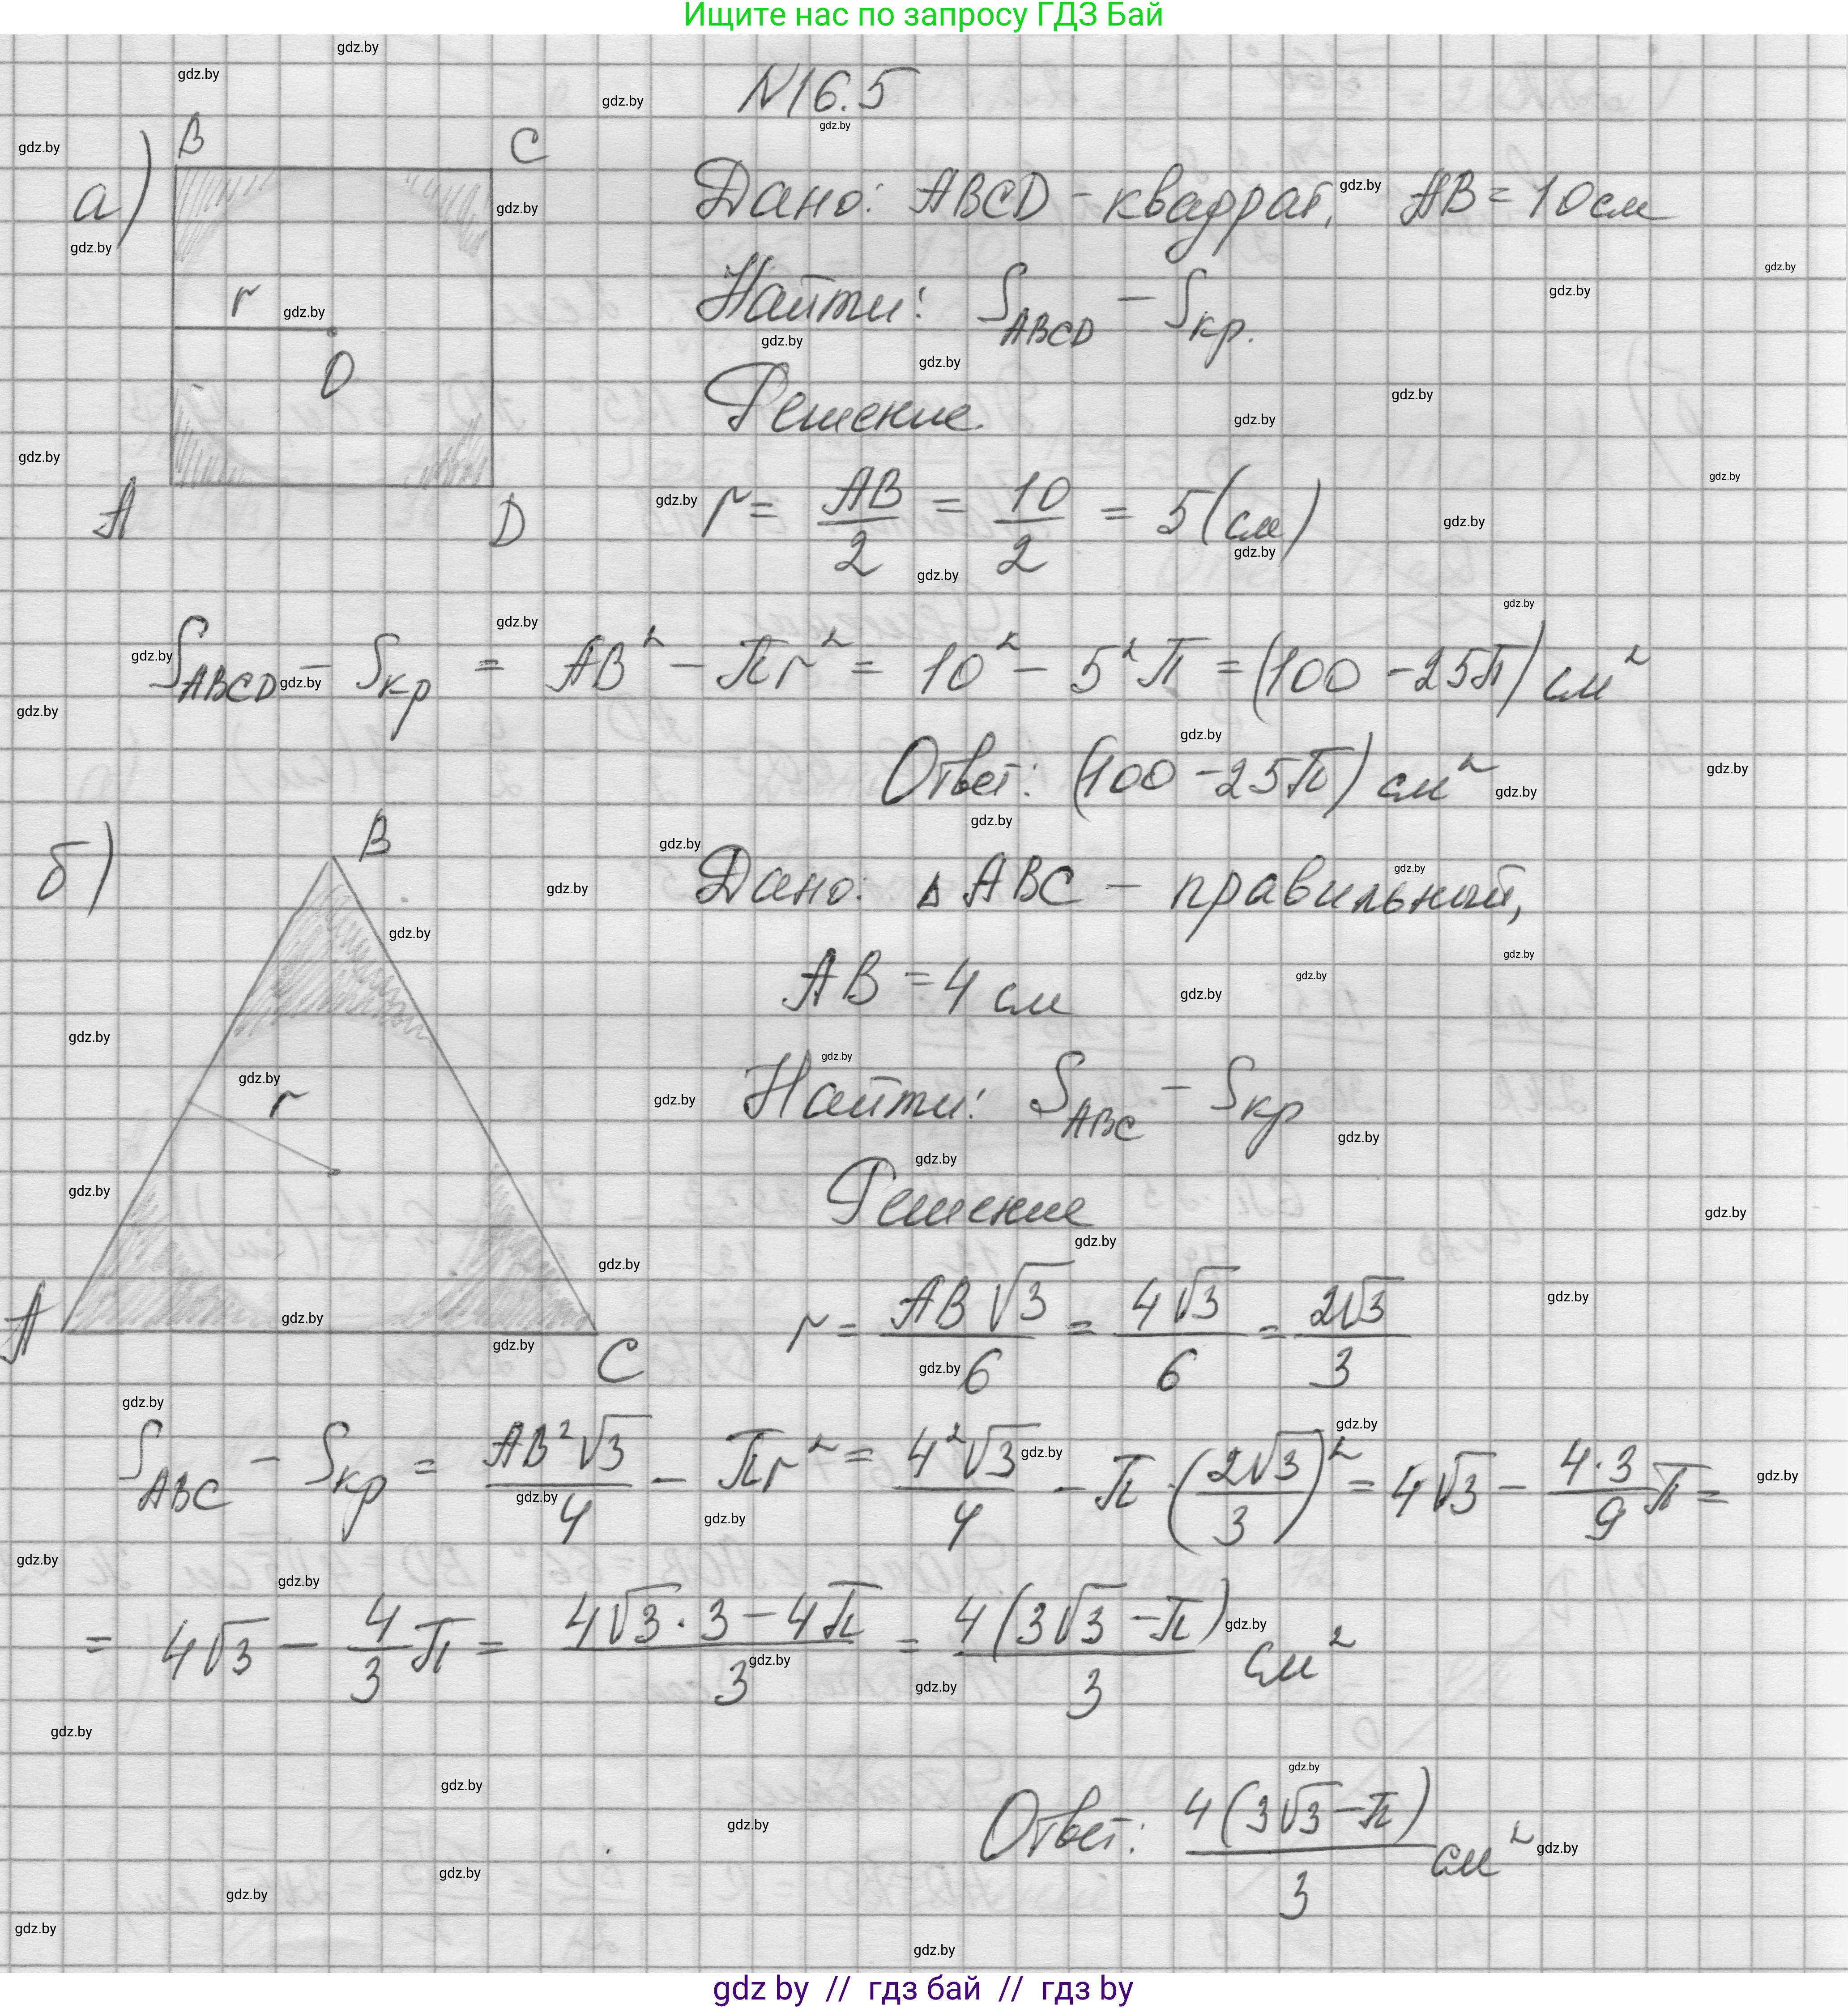 Ищите нас по запросу ГДЗ Бай
N16.5
а)
B C
r
O
A D
Дано: ABCD - квадрат, AB = 10 см
Найти: S_ABCD - S_кр.
Решение.
r = AB/2 = 10/2 = 5 (см)
S_ABCD - S_кр = AB² - πr² = 10² - 5²π = (100 - 25π) см²
Ответ: (100 - 25π) см²
б)
B
r
A C
Дано: △ABC - правильный,
AB = 4 см
Найти: S_ABC - S_кр
Решение
r = AB√3/6 = 4√3/6 = 2√3/3
S_ABC - S_кр = AB²√3/4 - πr² = 4²√3/4 - π·(2√3/3)² = 4√3 - 4·3/9 π =
= 4√3 - 4/3 π = (4√3·3 - 4π)/3 = 4(3√3 - π)/3 см²
Ответ: 4(3√3 - π)/3 см²
gdz by // гдз бай // гдз by